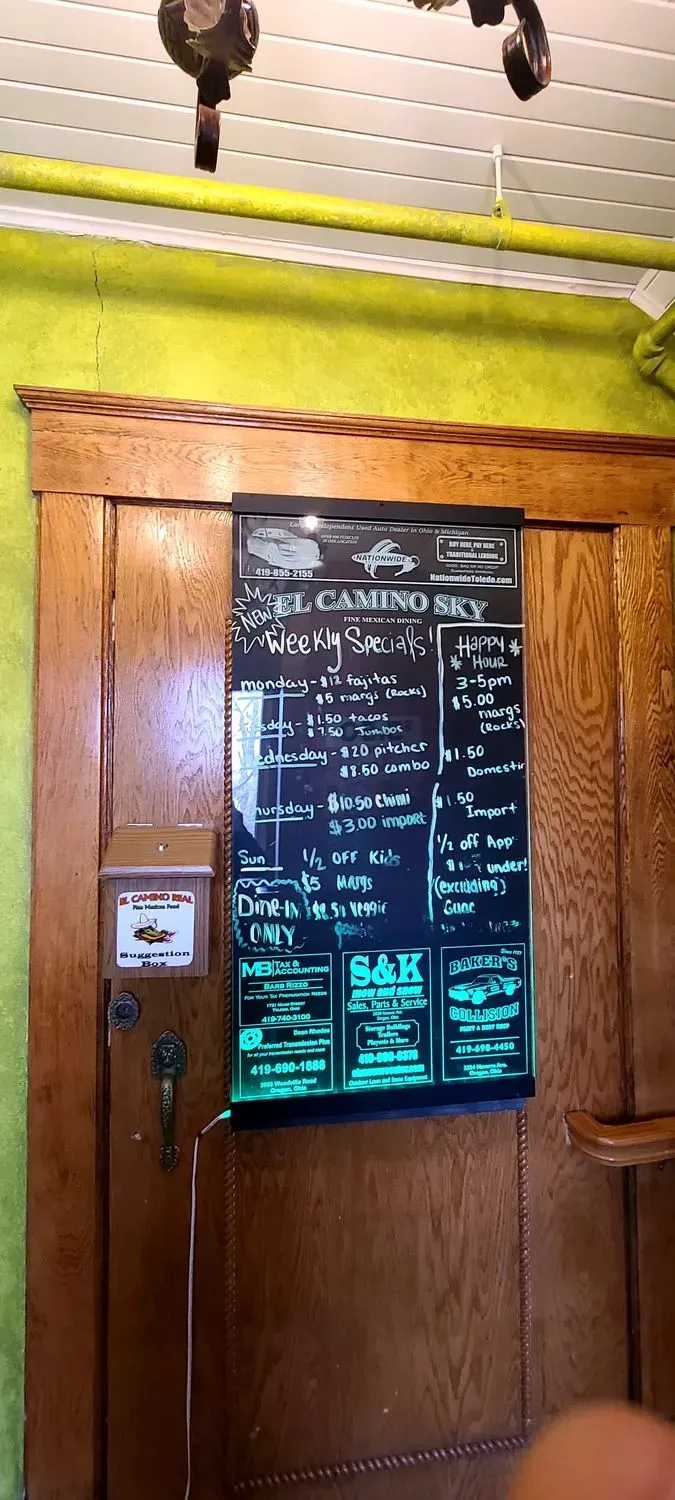 Independent Used Auto Dealer in Ohio & Michigan
OVER 400 VEHICLES
IN ONE LOCATION
419-855-2155
NATIONWIDE
BUY HERE, PAY HERE
&
TRADITIONAL LENDING
GOOD, BAD OR NO CREDIT
GUARANTEED APPROVAL
NationwideToledo.com
NEW
EL CAMINO SKY
FINE MEXICAN DINING
Weekly Specials!
monday - $12 fajitas
$5 margs (Rocks)
$1.50 tacos
Jumbos
Wednesday - $20 pitcher
$8.50 combo
Thursday - $10.50 Chimi
$3.00 import
Sun 1/2 OFF Kids
$5 Margs
Dine-In Veggie
ONLY
Happy
Hour
3-5pm
$5.00
margs
(Rocks)
$1.50
Domestic
Import
1/2 off App
under!
(excluding)
Guac
EL CAMINO REAL
Fine Mexican Food
Suggestion
Box
MB TAX &
ACCOUNTING
BARB RIZZO
FOR YOUR TAX PREPARATION NEEDS
TOLEDO, OHIO
419-740-3100
Dean Rhodes
Preferred Transmission Plus
for all your transmission needs and more
419-690-1888
2953 Woodville Road
Oregon, Ohio
S&K
mow and snow
Sales, Parts & Service
Oregon, Ohio
Storage Buildings
Trailers
Playsets & More
Outdoor Lawn and Snow Equipment
BAKER'S
COLLISION
PAINT & BODY SHOP
419-698-4450
2234 Navarre Ave.
Oregon, Ohio